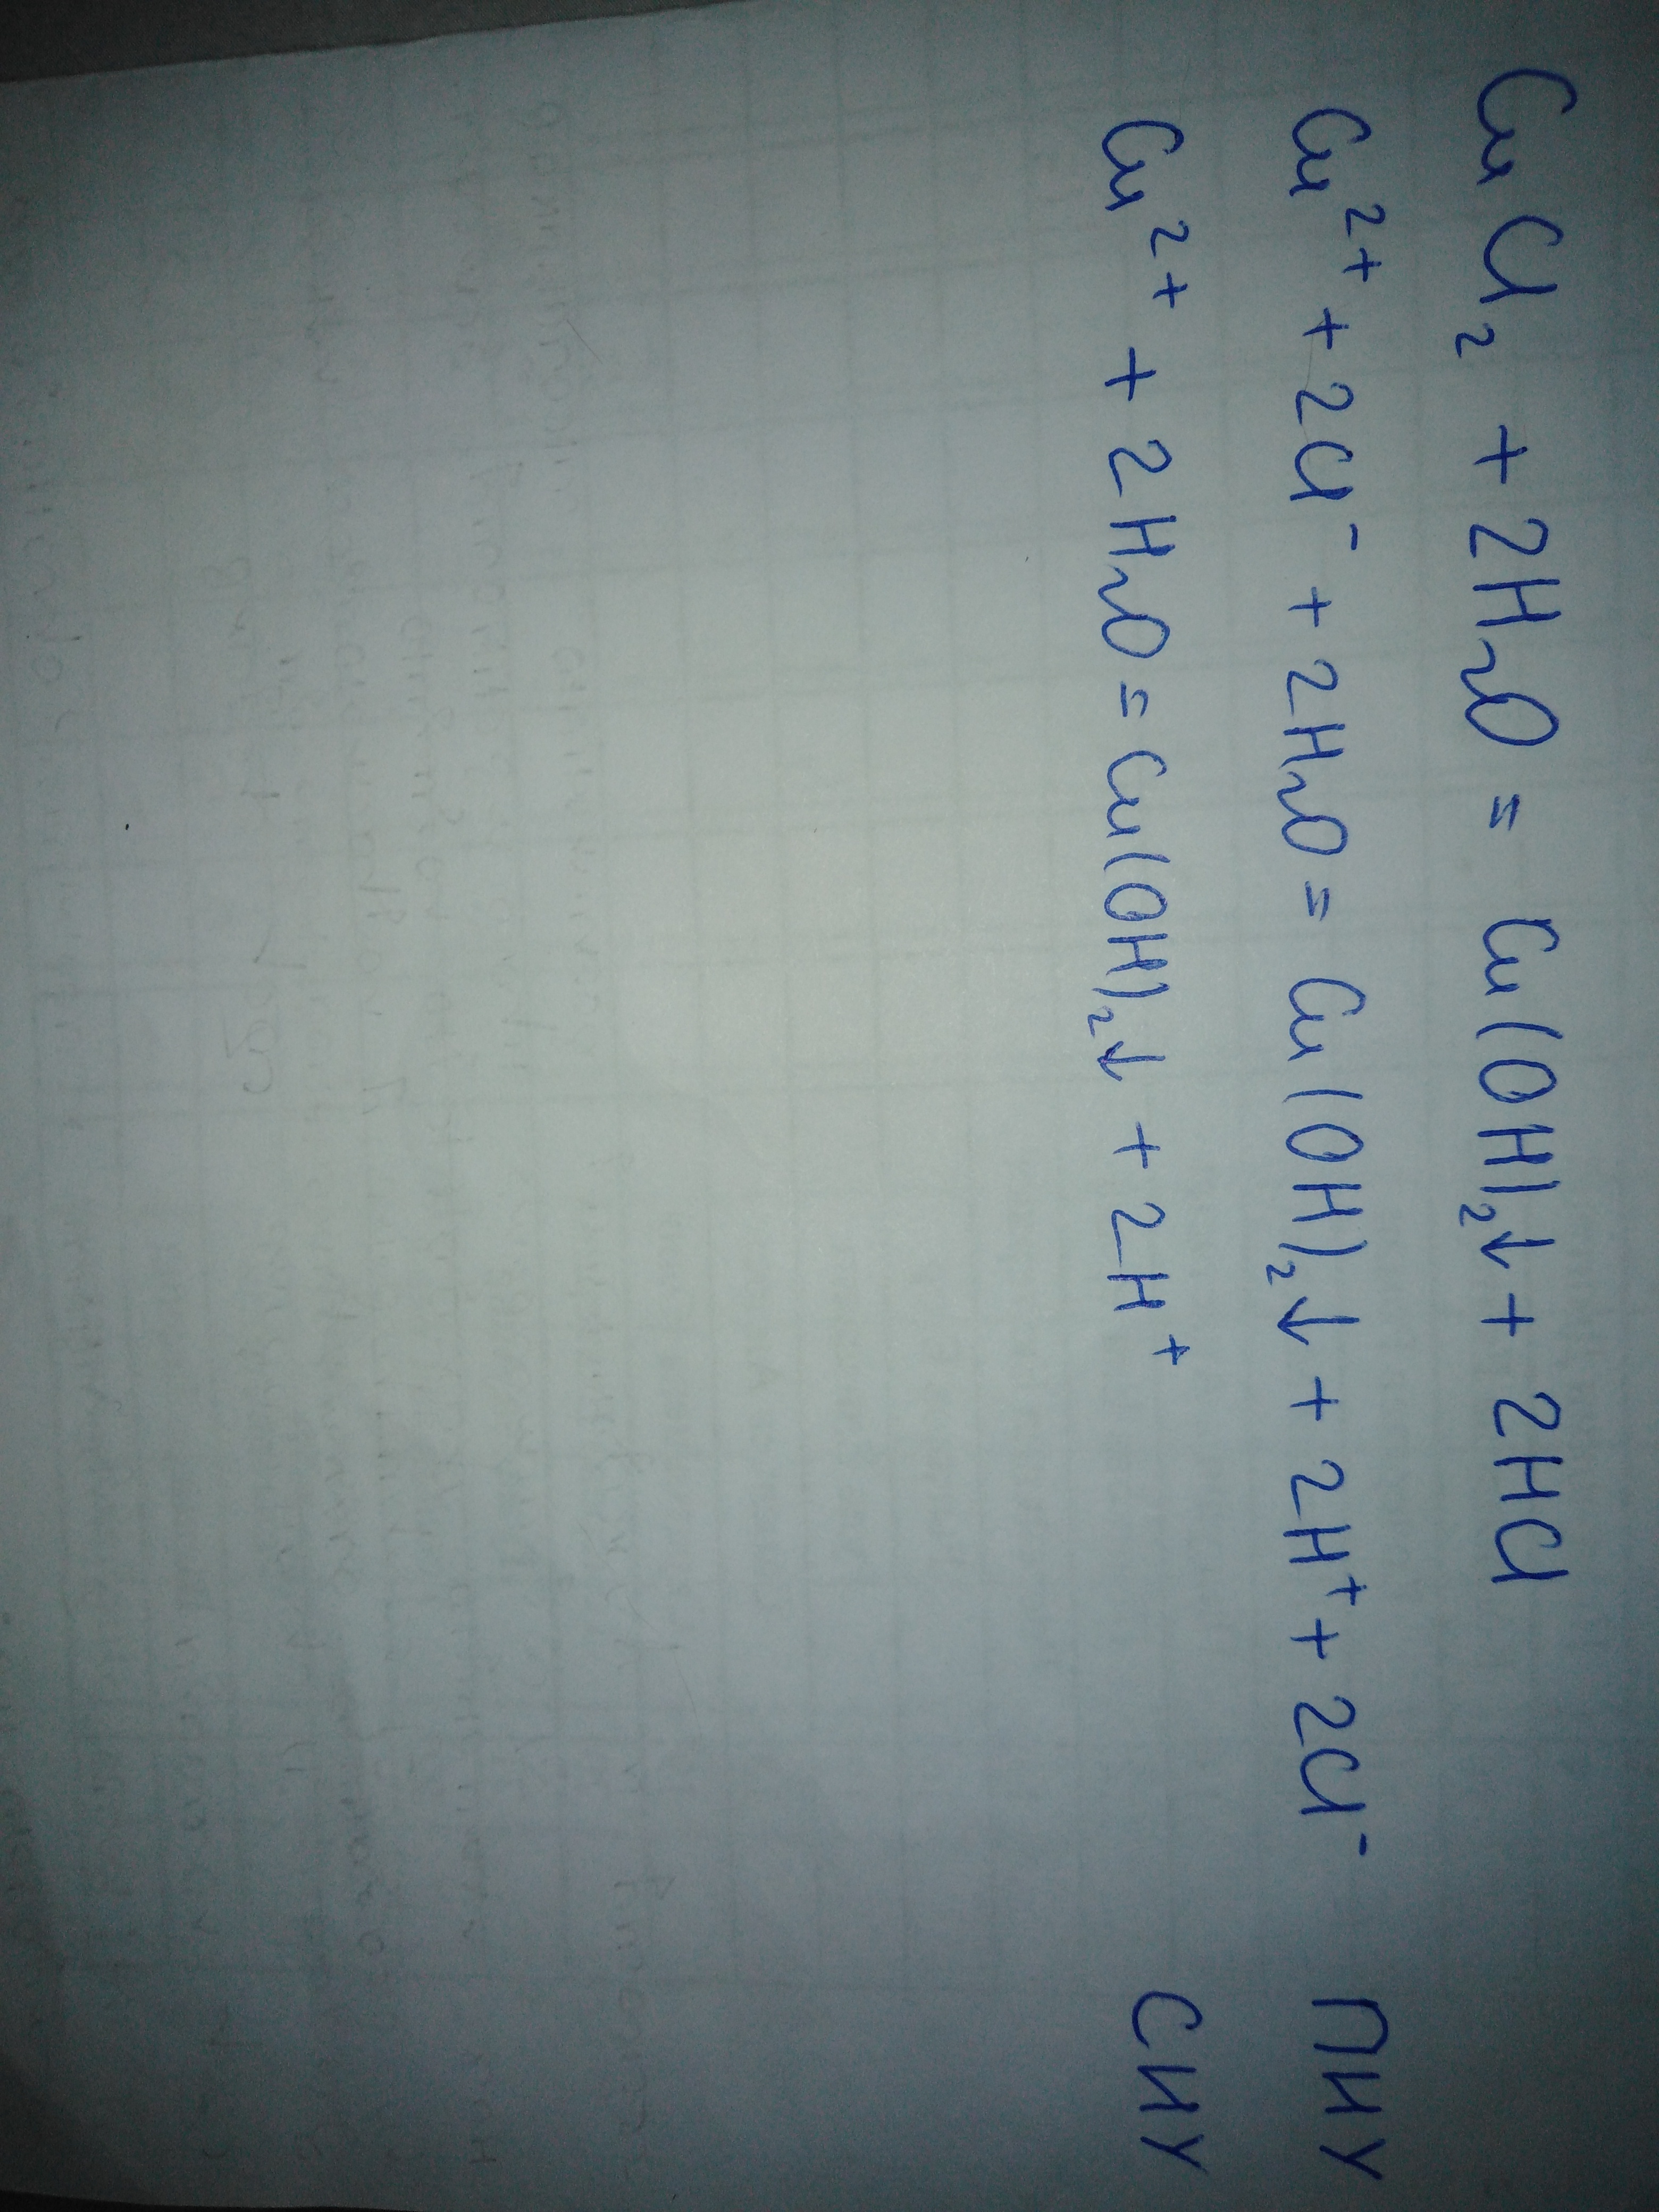 CuCl₂ + 2H₂O = Cu(OH)₂↓ + 2HCl
Cu²⁺ + 2Cl⁻ + 2H₂O = Cu(OH)₂↓ + 2H⁺ + 2Cl⁻ ПИУ
Cu²⁺ + 2H₂O = Cu(OH)₂↓ + 2H⁺ СИУ